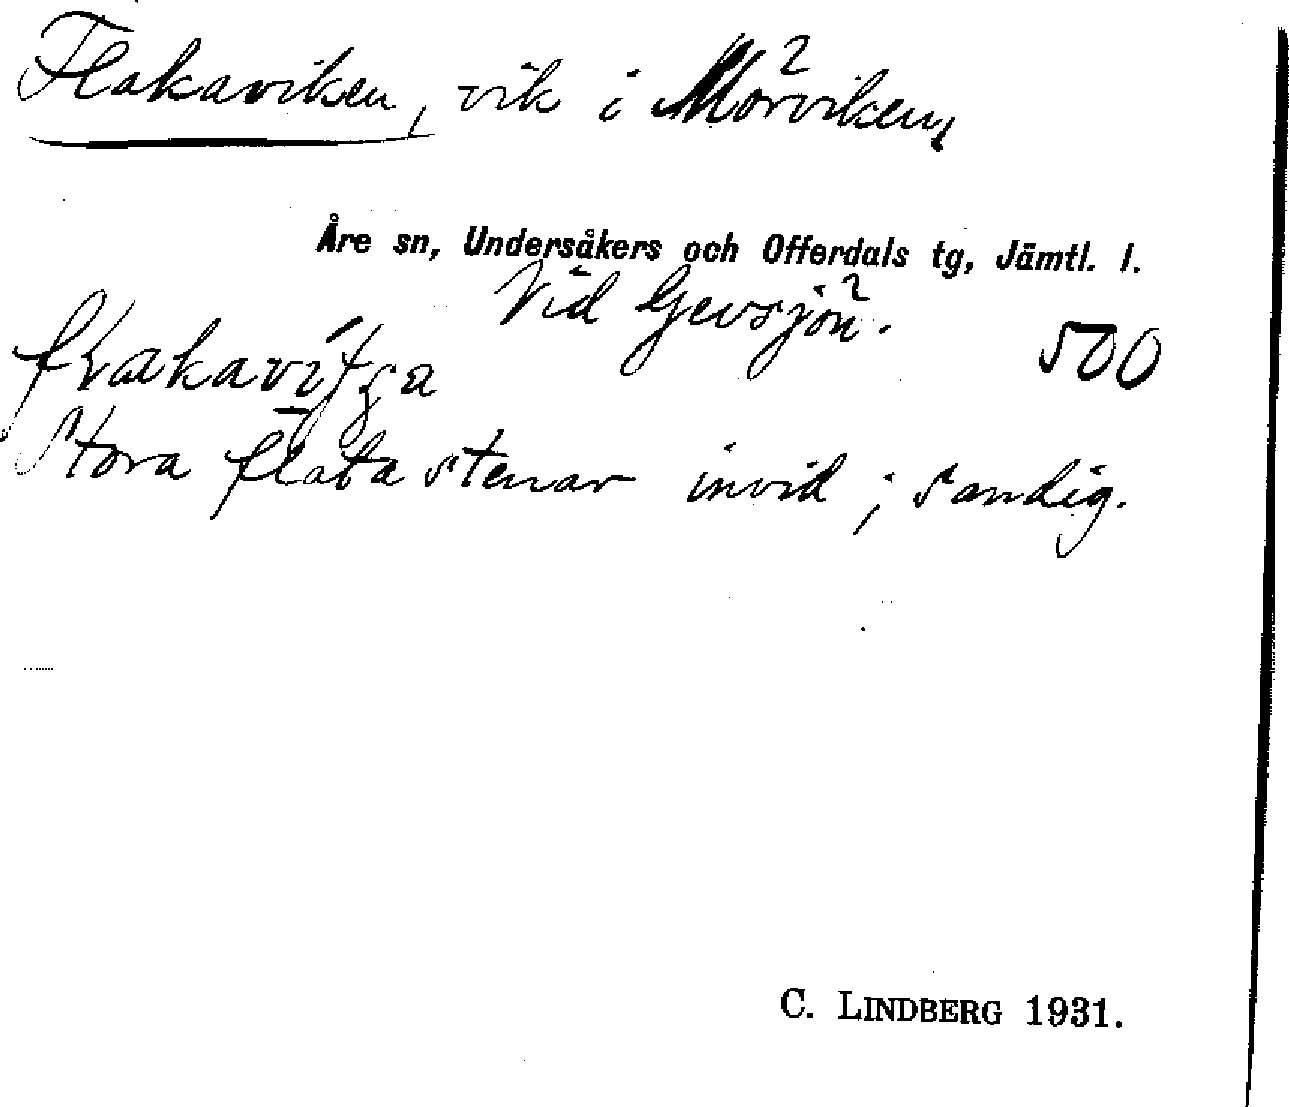 Flakaviken, vik i Mörviken,
2
Åre sn, Undersåkers och Offerdals tg, Jämtl. l.
Vid Gevsjön².
500
Stora flata stenar invid; sandig.
C. LINDBERG 1931.